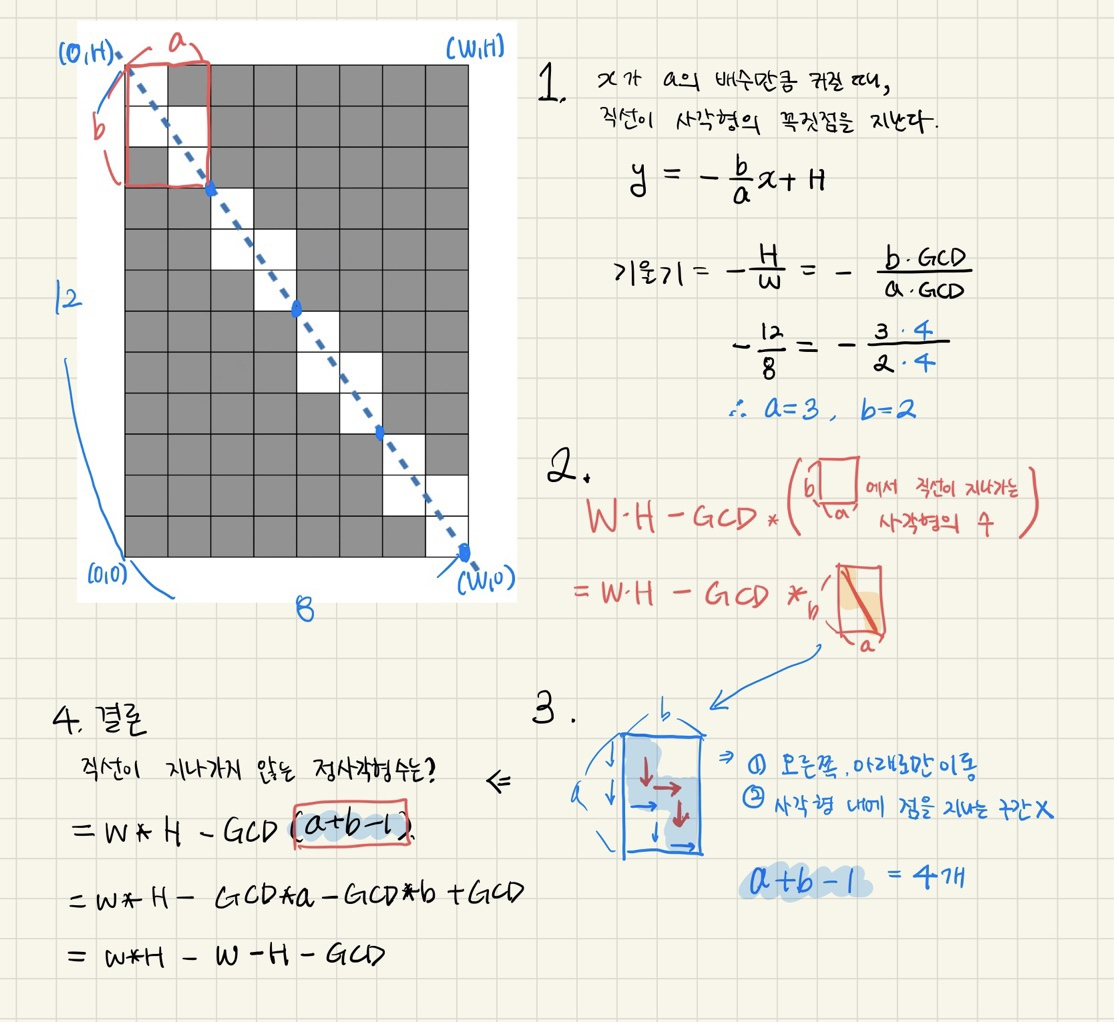 (0,H)
a
(W,H)
b
12
(0,0)
8
(W,0)
1. x가 a의 배수만큼 커질 때,
직선이 사각형의 꼭짓점을 지난다.
y = - b/a x + H
기울기 = - H/W = - b·GCD / a·GCD
- 12/8 = - 3·4 / 2·4
∴ a=3, b=2
2.
W·H - GCD * ( b a 에서 직선이 지나가는
사각형의 수 )
= W·H - GCD * b a
3.
b
a
⇒ ① 오른쪽, 아래로만 이동
② 사각형 내에 점을 지나는 구간 X
a+b-1 = 4개
⇐
4. 결론
직선이 지나가지 않는 정사각형수는?
= W*H - GCD (a+b-1).
= W*H - GCD*a - GCD*b + GCD
= W*H - W - H - GCD